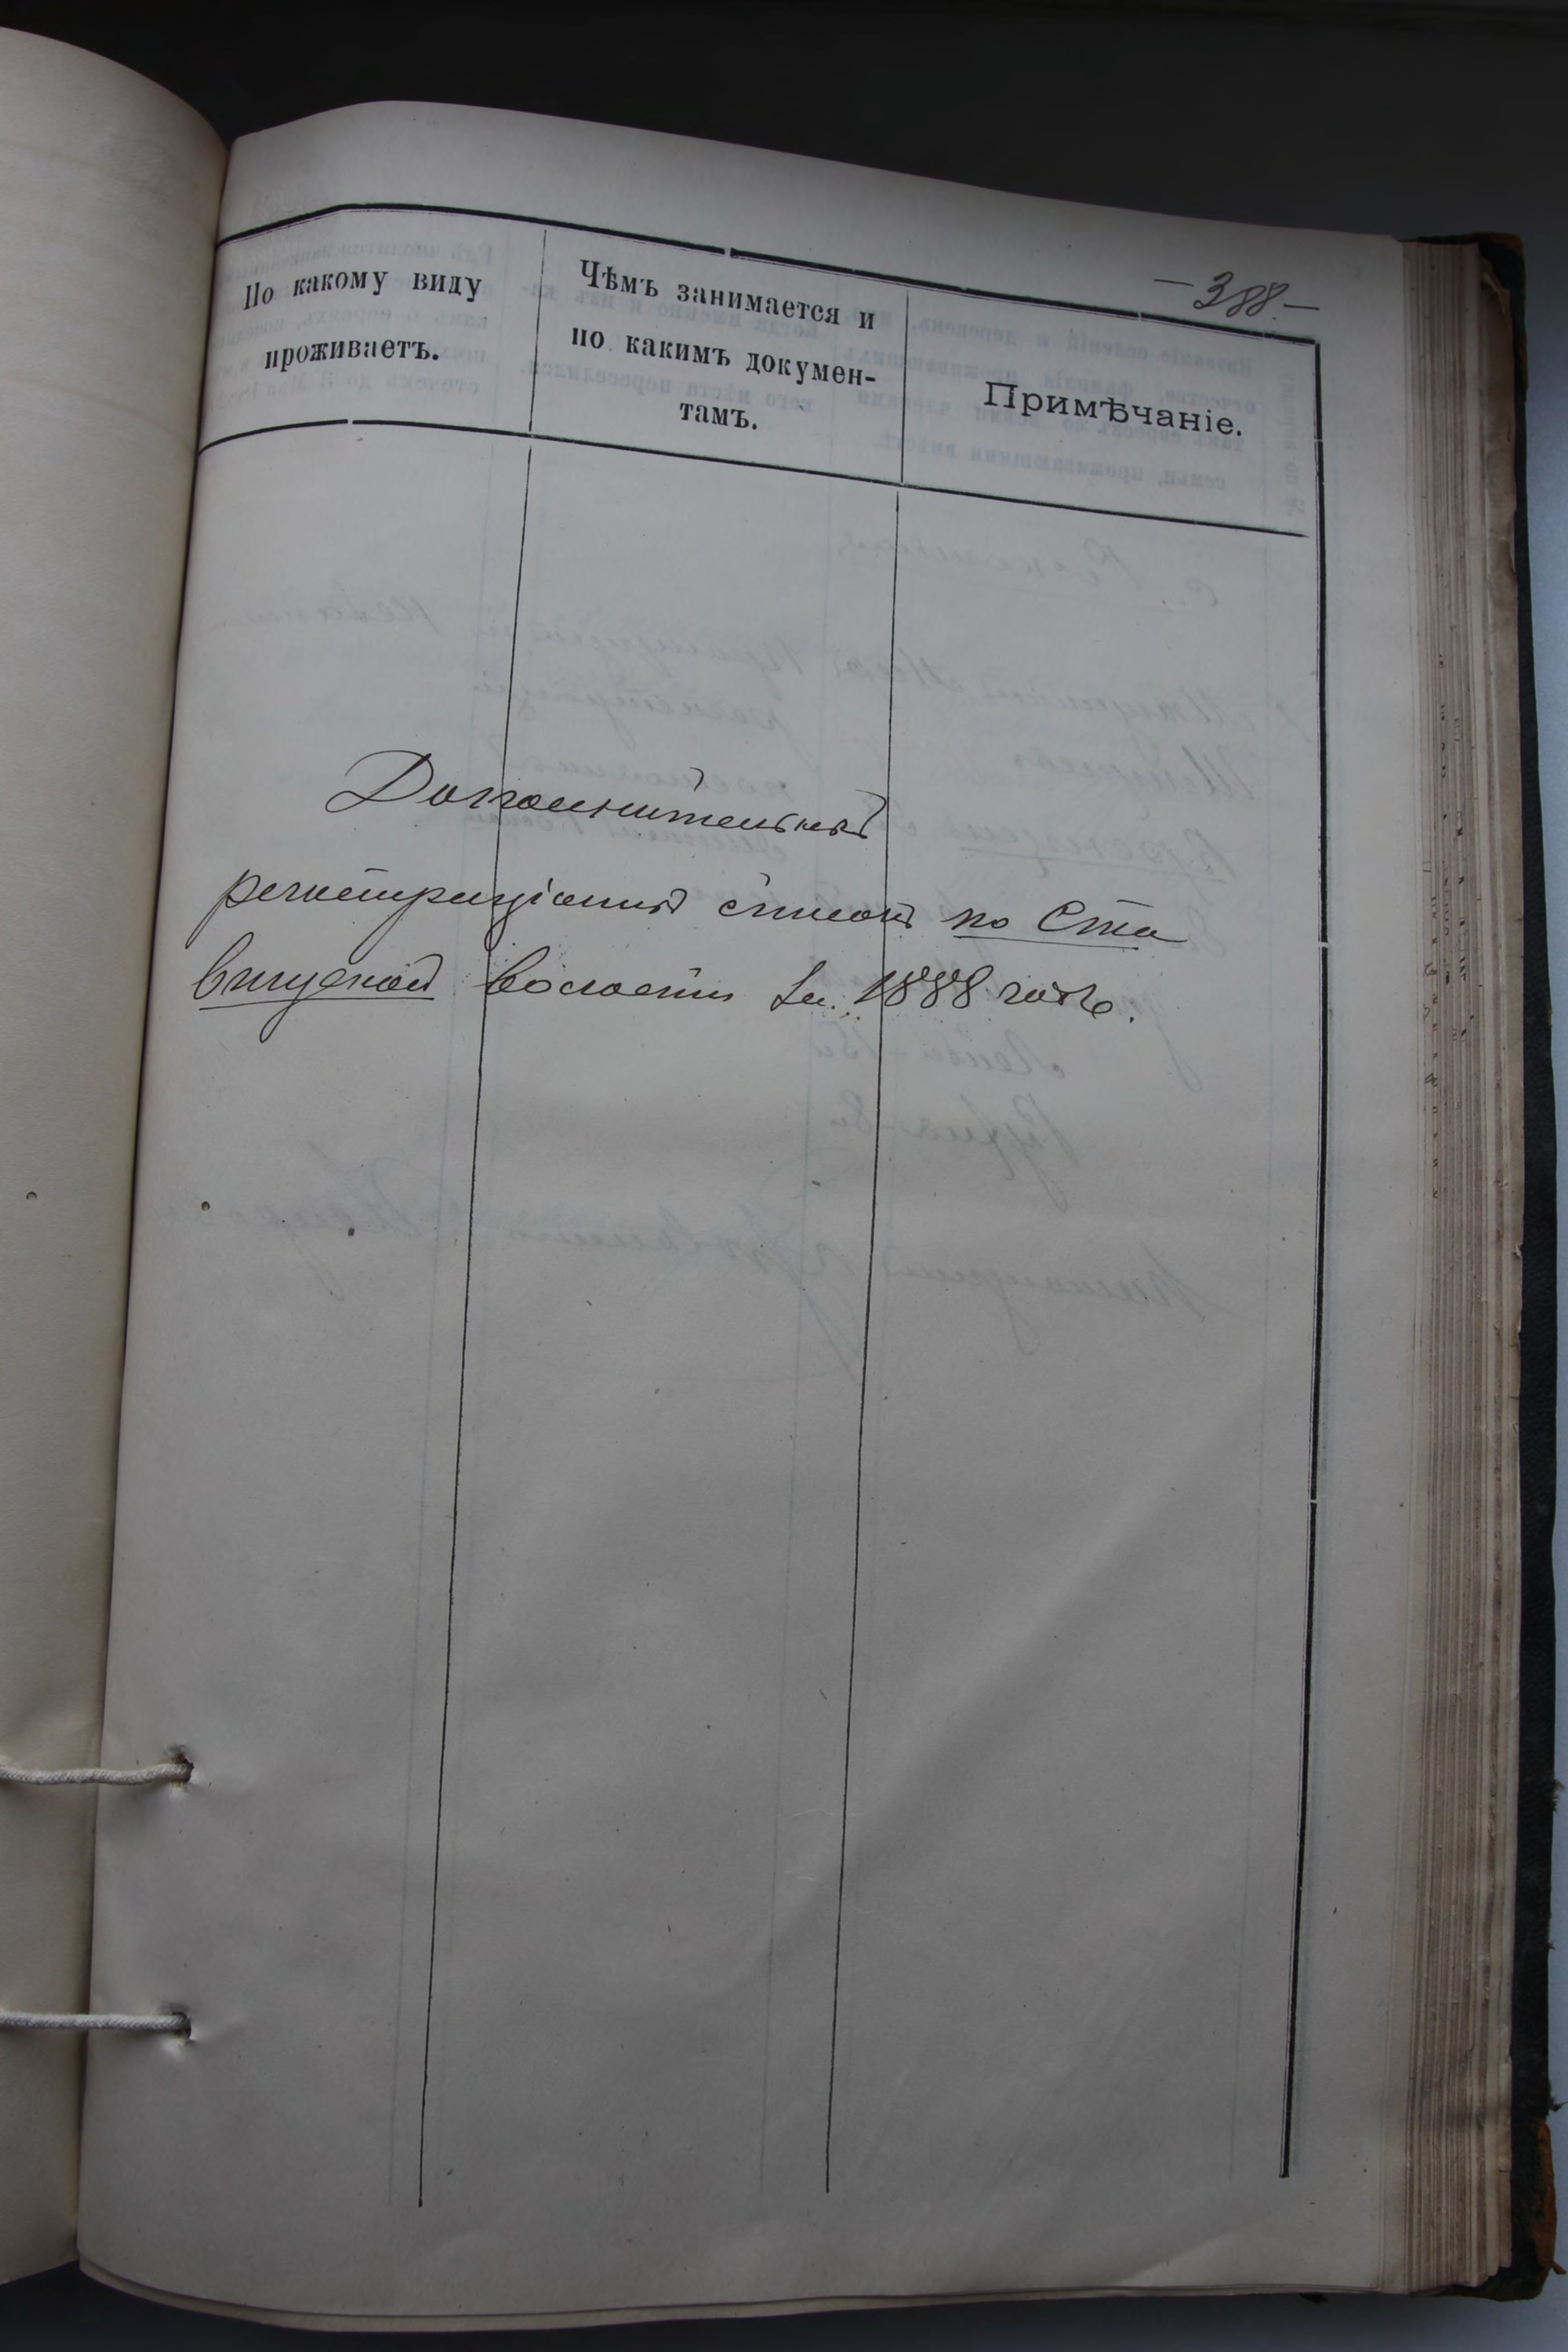 — 388. —
По какому виду
проживаетъ.
Чѣмъ занимается и
по какимъ докумен-
тамъ.
Примѣчаніе.
Дополнительный
регистраціонный списокъ по Ста
вищской волости за 1888 годъ.